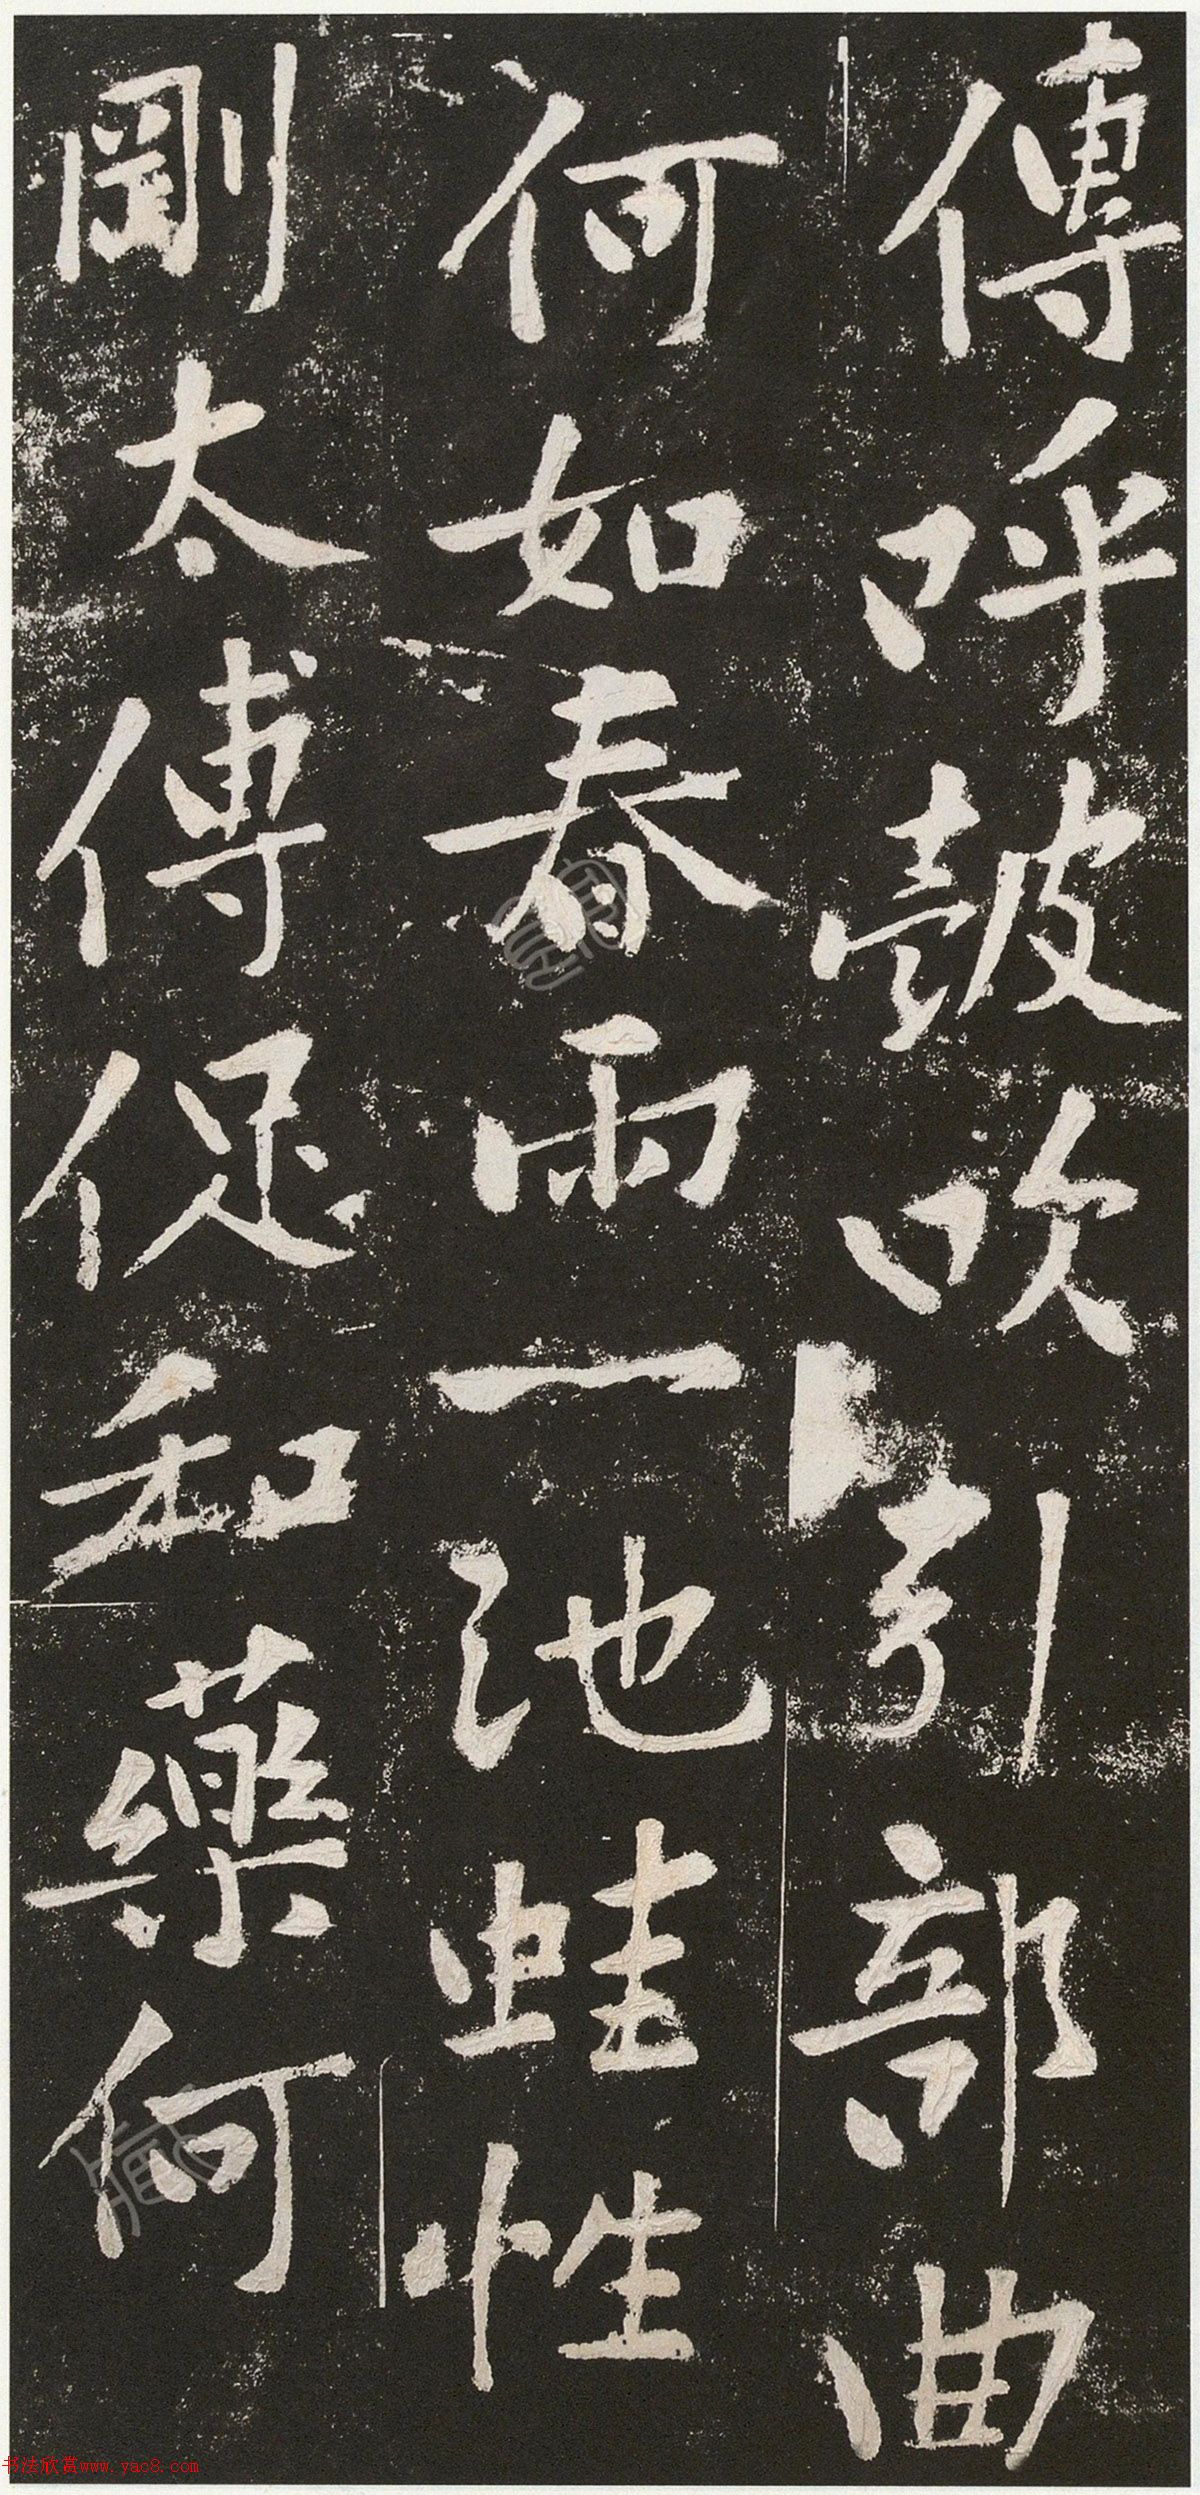 傳呼鼓吹引部曲
何如春雨一池蛙性
剛太傅促和藥何
书法欣赏www.yac8.com